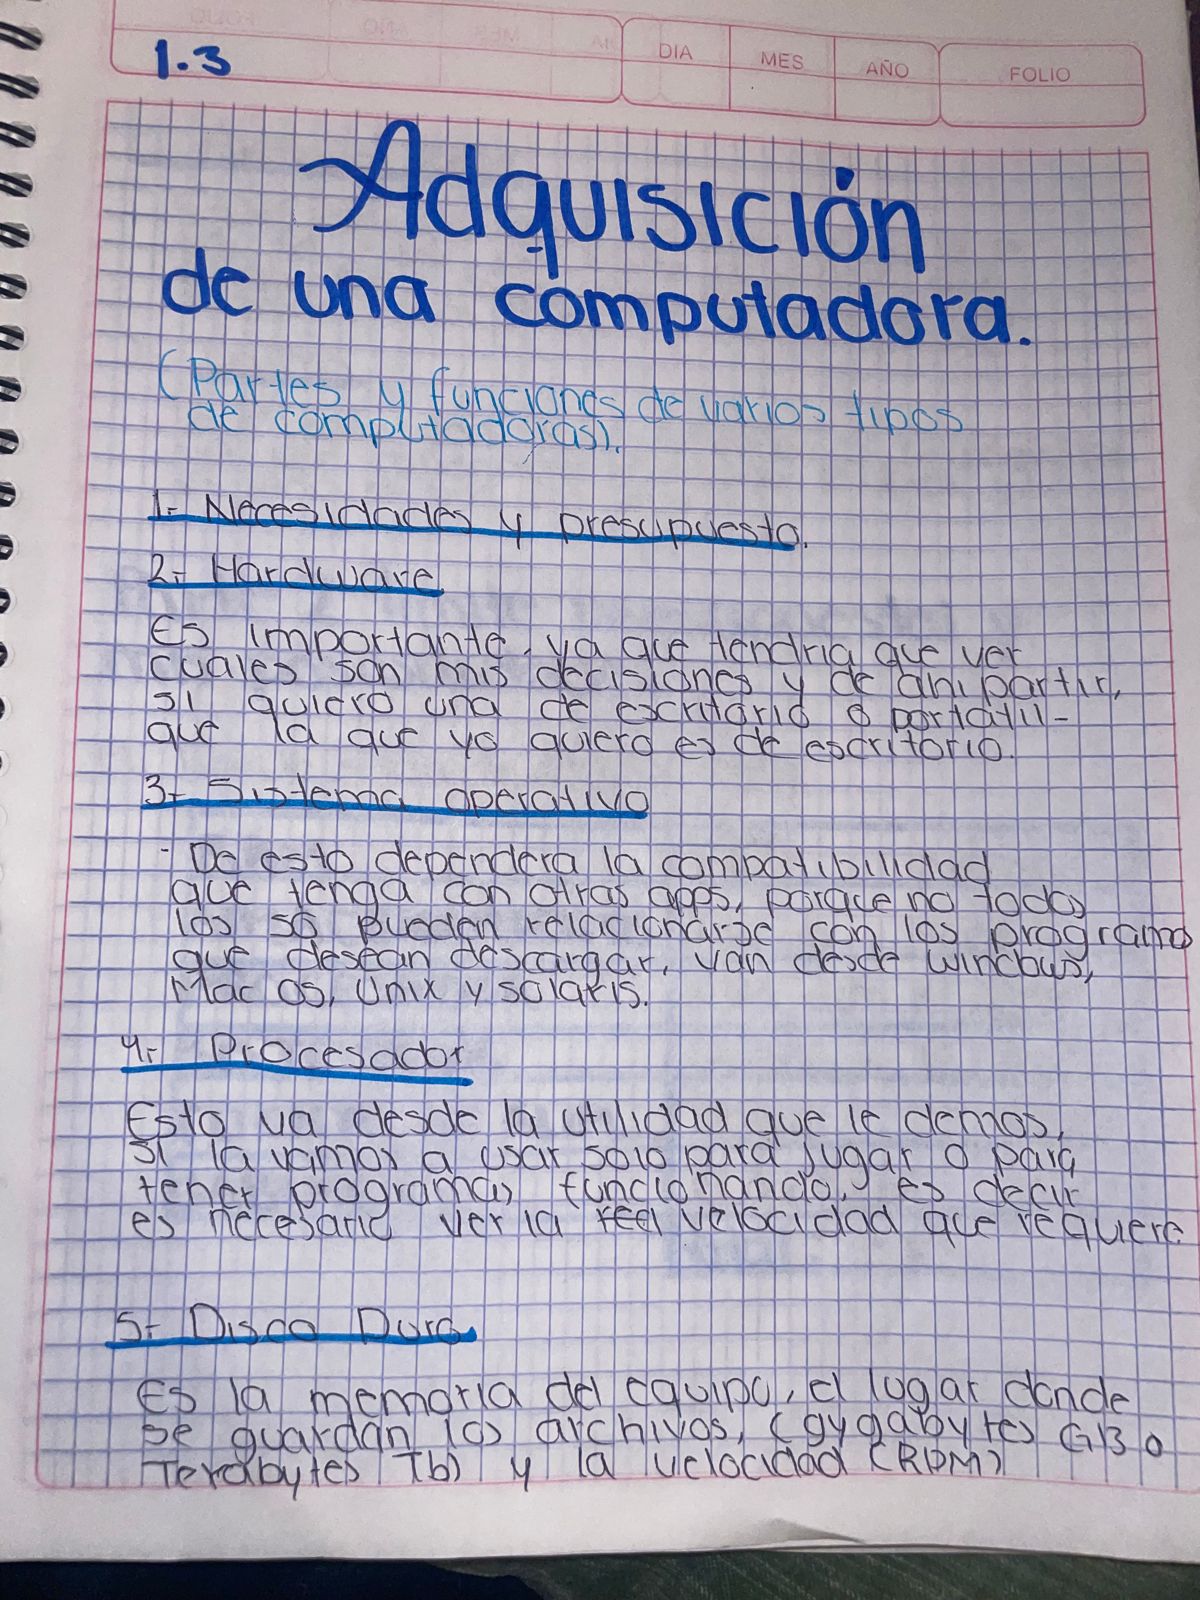 1.3
DIA MES AÑO FOLIO
Adquisición
de una computadora.
(Partes y funciones de varios tipos
de computadoras).
1.- Necesidades y presupuesto.
2.- Hardware.
Es importante, ya que tendria que ver
cuales son mis decisiones y de ahi partir,
si quiero una de escritorio o portatil-
que la que yo quiero es de escritorio.
3.- Sistema operativo
- De esto dependera la compatibilidad
que tenga con otras apps, porque no todos
los so pueden relacionarse con los programas
que desean descargar, van desde windows,
Mac os, Unix y solaris.
4.- Procesador
Esto va desde la utilidad que le demos,
si la vamos a usar solo para jugar o para
tener programas funcionando, es decir
es necesario ver la velocidad que requiere
5.- Disco Duro.
Es la memoria del equipo, el lugar donde
se guardan los archivos, (gygabytes GB o
Terabytes Tb) y la velocidad (RPM)